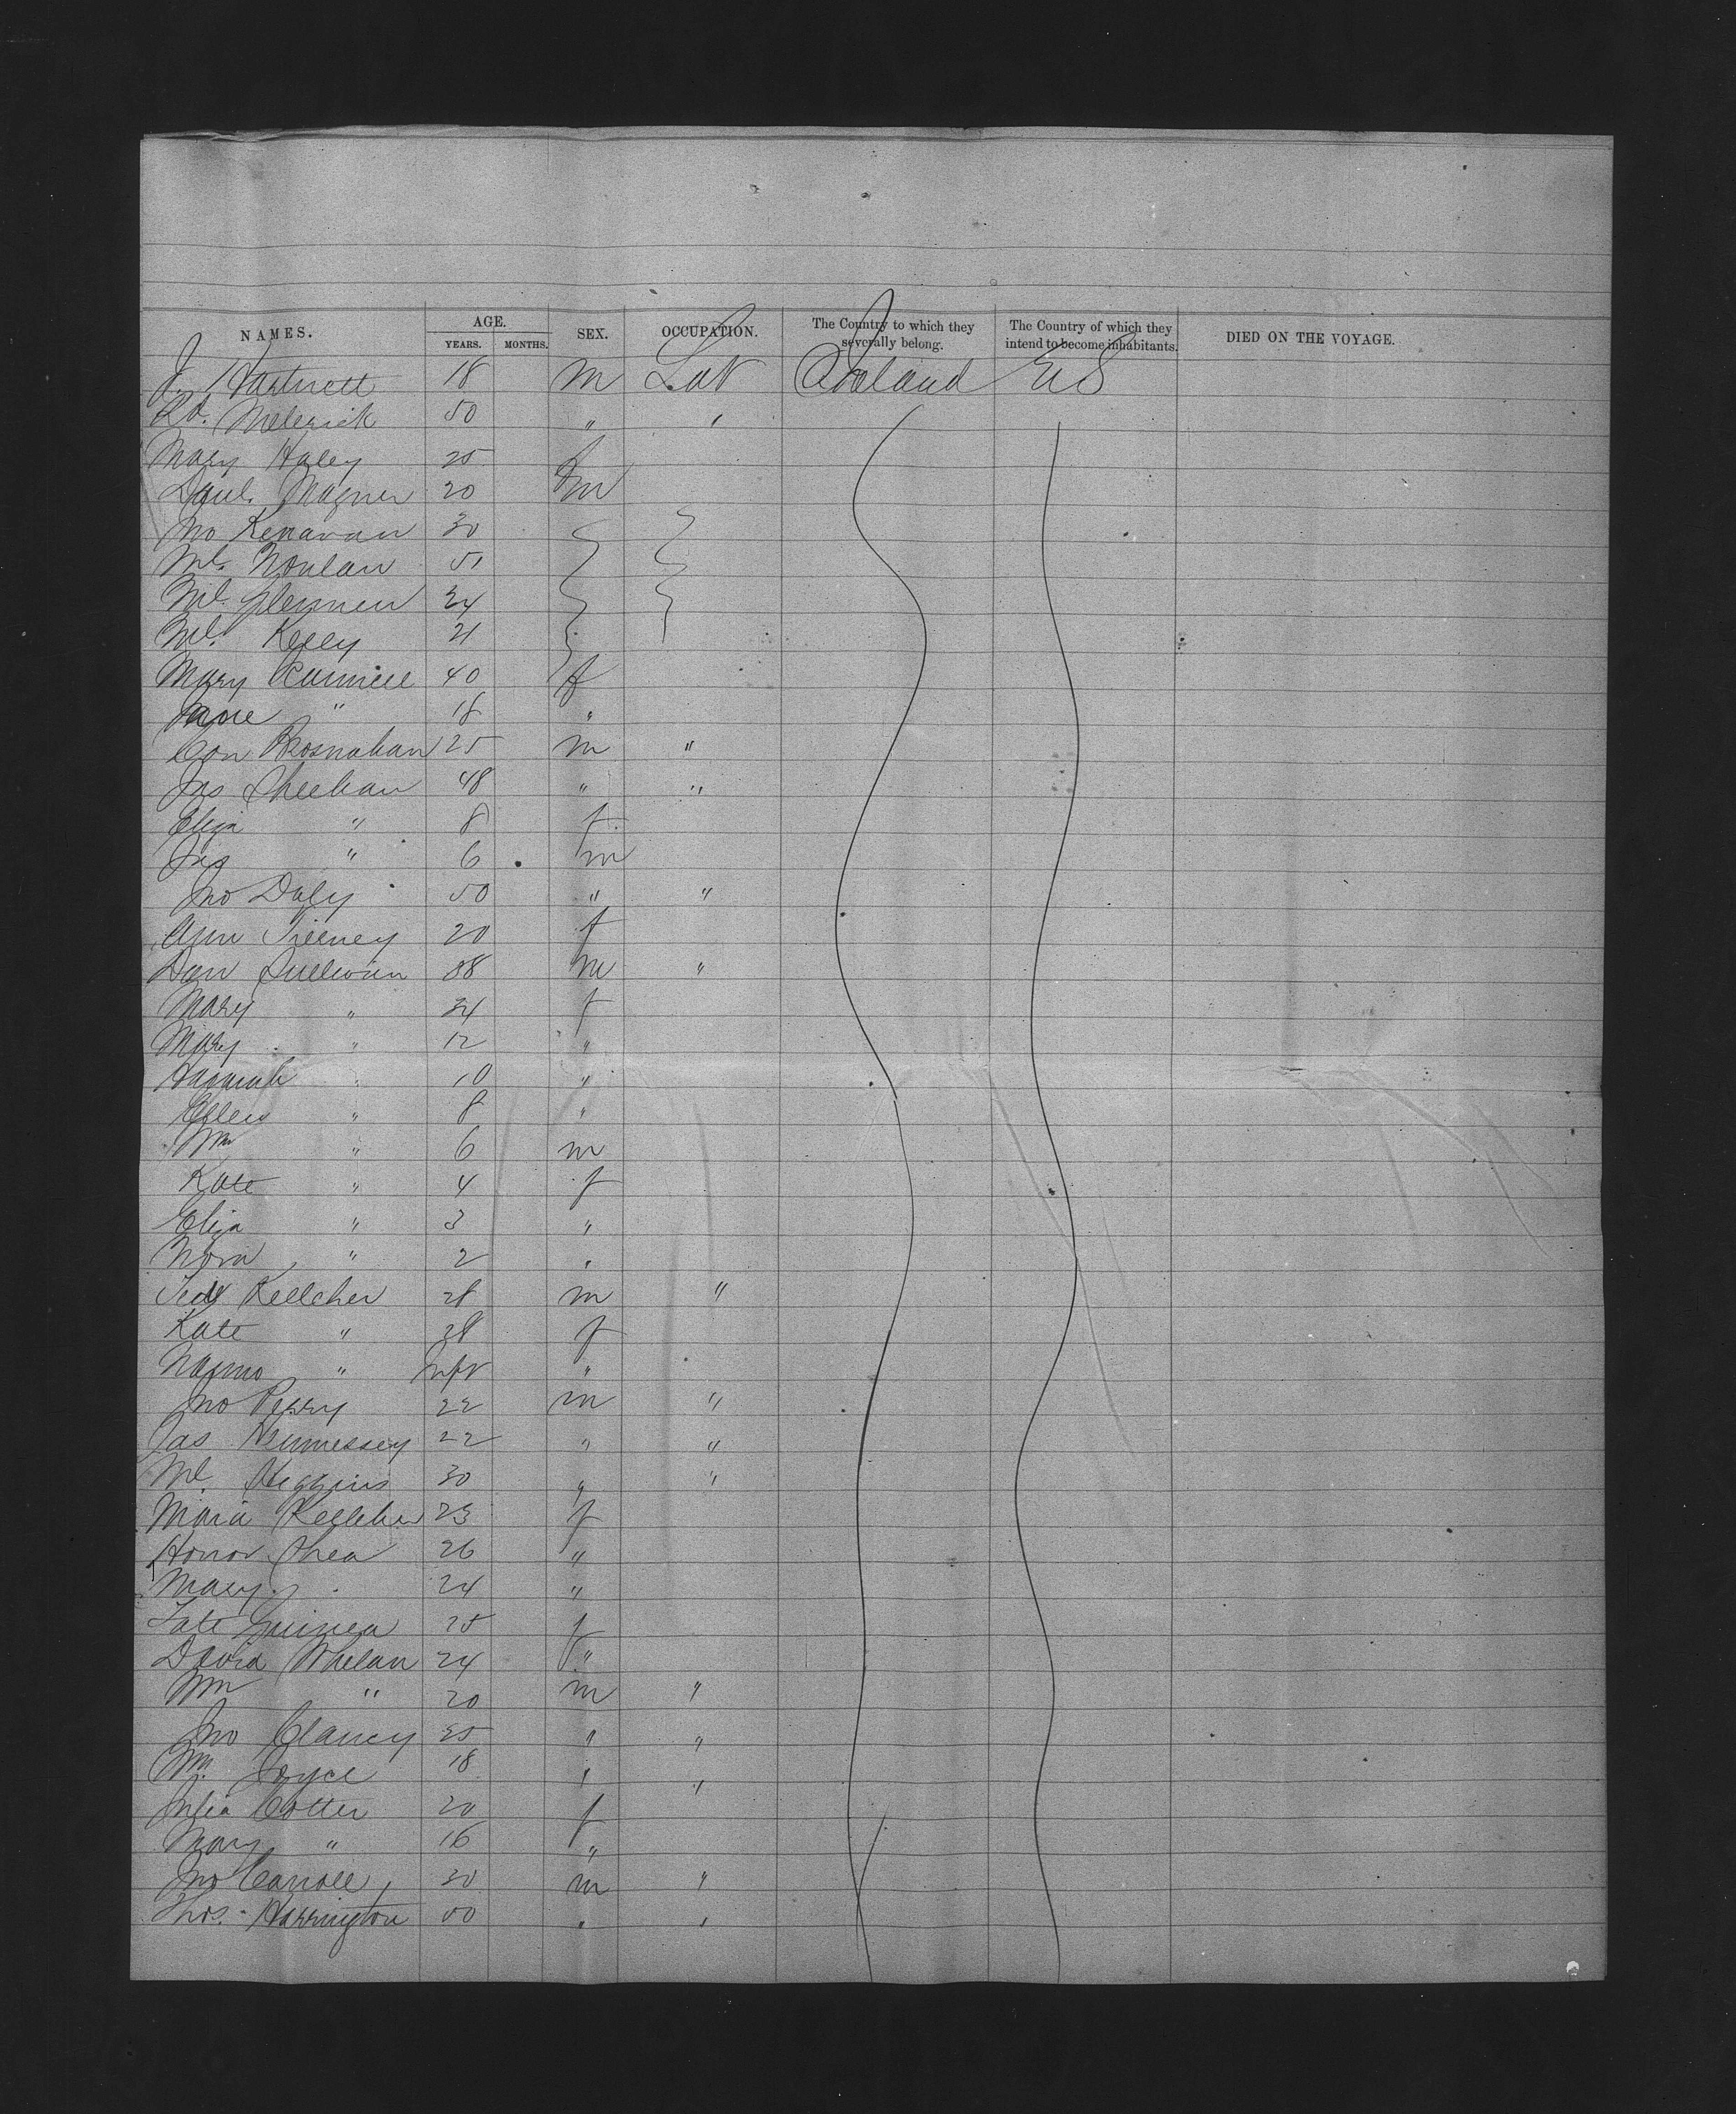 NAMES. AGE. SEX. OCCUPATION. The Country to which they severally belong. The Country of which they intend to become inhabitants. DIED ON THE VOYAGE.
YEARS. MONTHS.
J Hartnett 18 m Lab Ireland US
Rd. 50 " "
Mary Haley 25 f
Danl. Magner 20 m
Jno Kenavan 30
Ml. Noulan
Ml. Glennen 24
Ml. Kelly 21
Mary Connell 40 f
Jane " 18 "
Con Brosnahan 25 m "
Jas Sheehan 48 " "
Eliza " 8 f
Jas " 6 m
Jno Daly 50 " "
Ann Tierney 20 f
Dan Sullivan 38 m "
Mary " 34 f
Mary " 12 "
Hannah " 10 "
Ellen " 8 "
Wm " 6 m
Kate " 4 f
Eliza " 3 "
Nora " 2 "
Kelleher 28 m "
Kate " 28 f
" Inft "
Jno Perry 22 m "
Jas Hennessey 22 " "
Ml. Higgins 30 " "
Maria Kelleher 23 f
Honor Shea 26 "
Mary " 24 "
Guinea 25 f
David Whelan 24 "
Wm " 20 m "
Jno Clancy 25 " "
Wm. Joyce 18 " "
Julia Cotter 20 f
Mary " 16 "
Jno Carroll 30 m "
Thos. Harrington " "